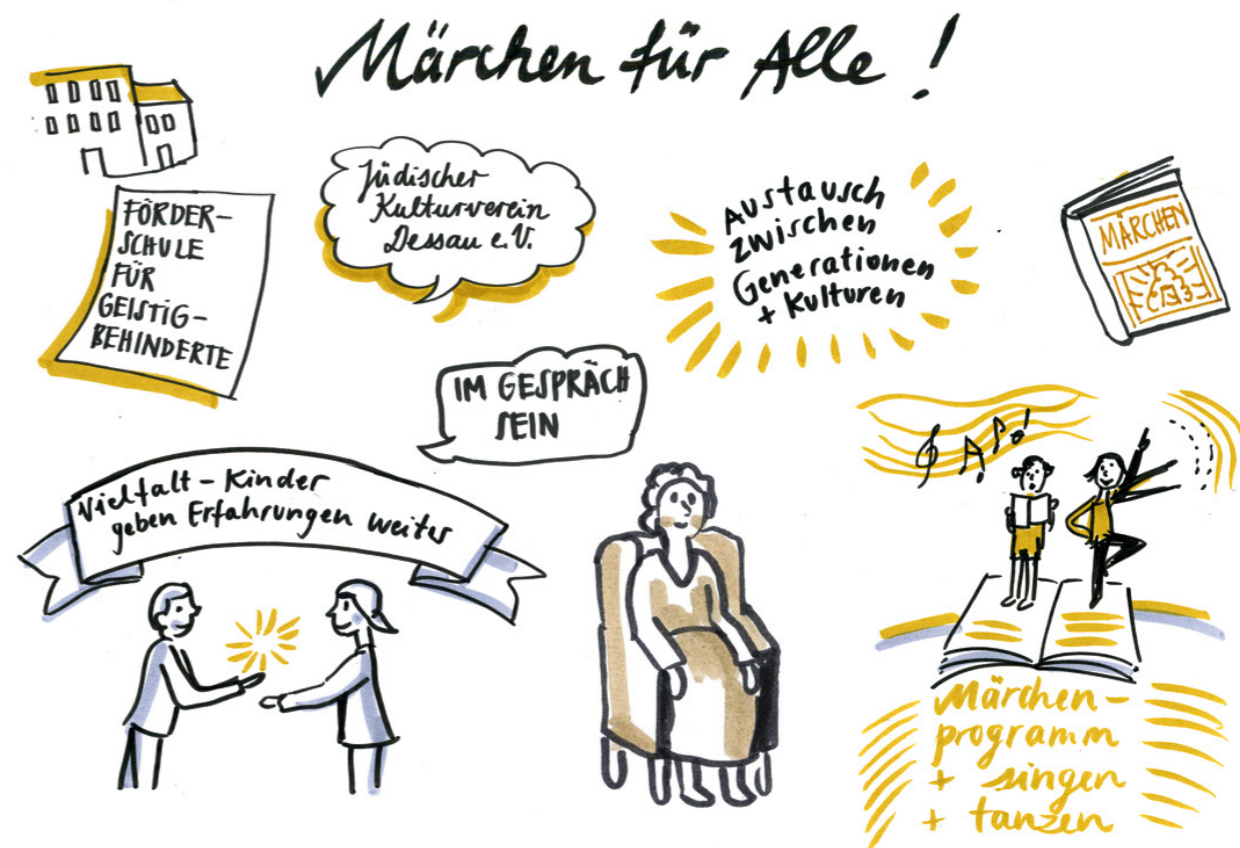 Märchen für Alle!
FÖRDER-
SCHULE
FÜR
GEISTIG-
BEHINDERTE
Jüdischer
Kulturverein
Dessau e.V.
Austausch
zwischen
Generationen
+ Kulturen
MÄRCHEN
IM GESPRÄCH
SEIN
Vielfalt - Kinder
geben Erfahrungen weiter
Märchen-
programm
+ singen
+ tanzen